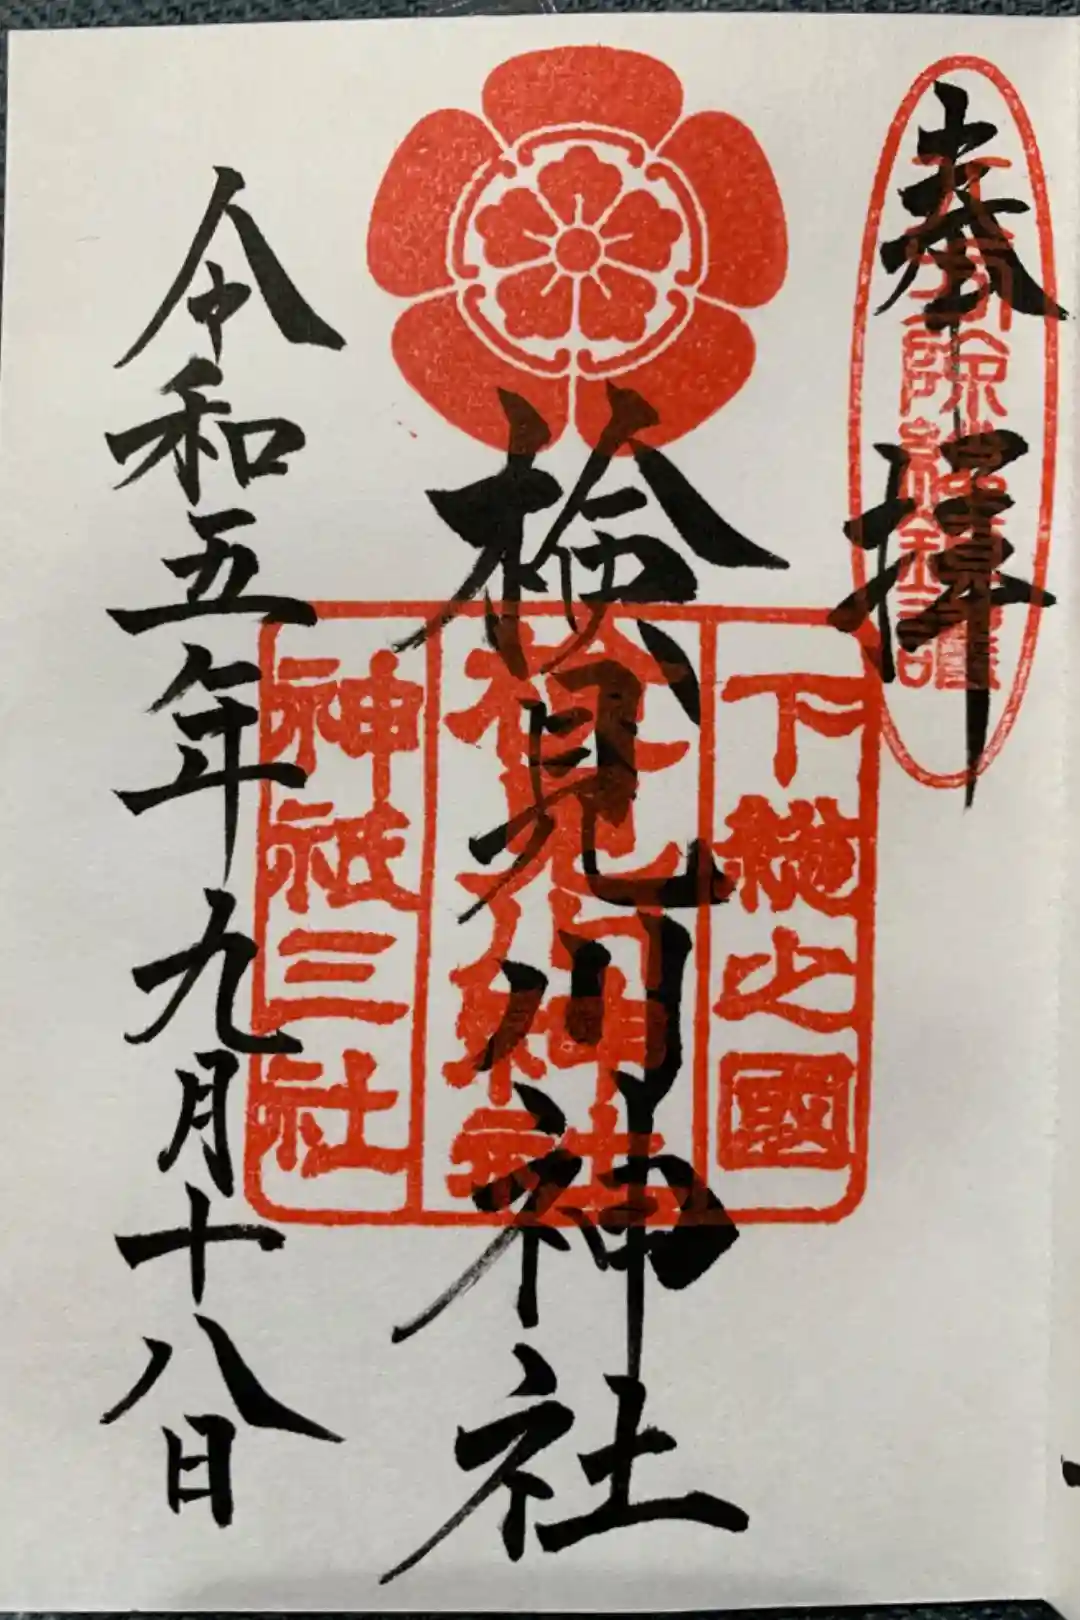 奉拝
八方除総鎮護
下総之國
検見川神社
神祇三社
検見川神社
令和五年九月十八日